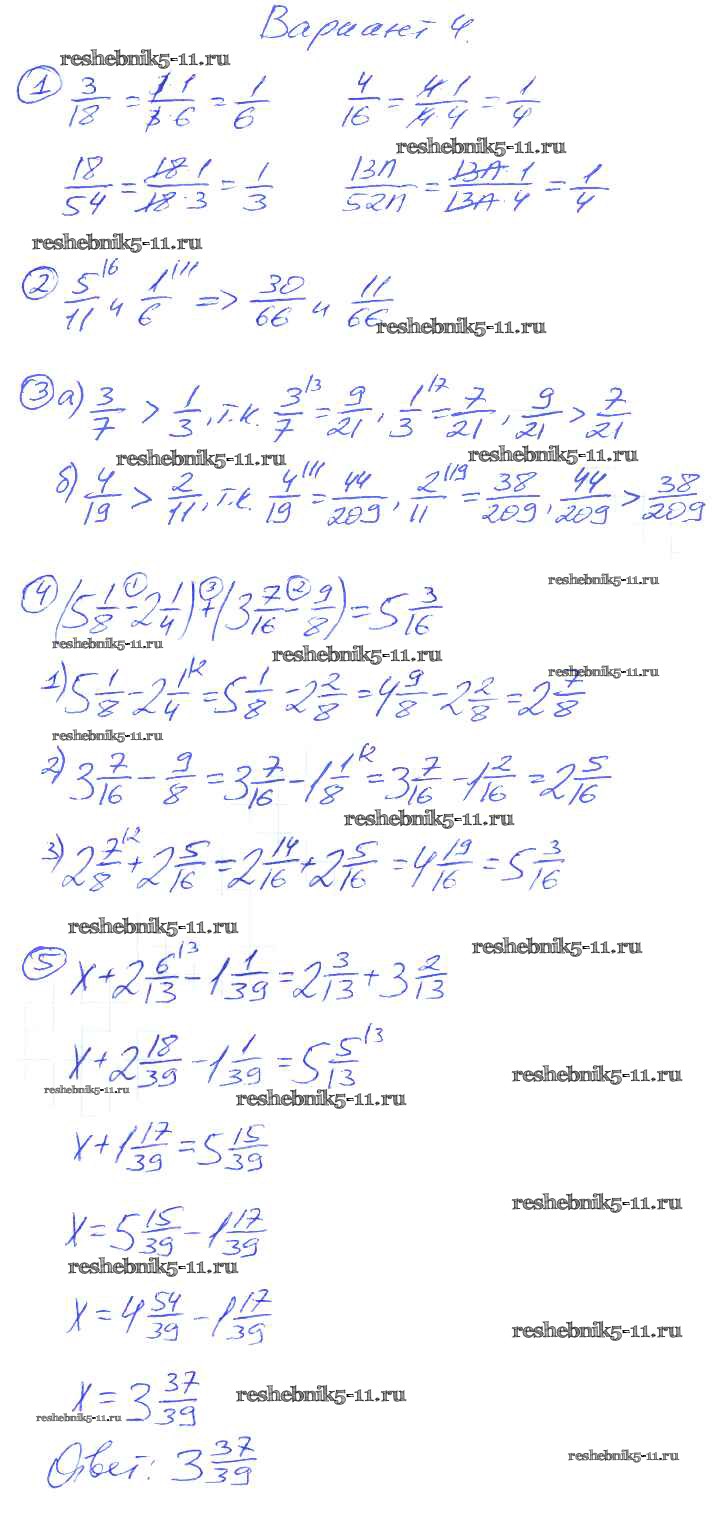 Вариант 4.
reshebnik5-11.ru
① 3/18 = 1·1/3·6 = 1/6 4/16 = 4·1/4·4 = 1/4
reshebnik5-11.ru
18/54 = 18·1/18·3 = 1/3 13п/52п = 13п·1/13п·4 = 1/4
reshebnik5-11.ru
② 5/11 |6 и 1/6 |11 => 30/66 и 11/66
reshebnik5-11.ru
③ а) 3/7 > 1/3, т.к. 3/7 |3 = 9/21, 1/3 |7 = 7/21, 9/21 > 7/21
reshebnik5-11.ru reshebnik5-11.ru
б) 4/19 > 2/11, т.к. 4/19 |11 = 44/209, 2/11 |19 = 38/209, 44/209 > 38/209
reshebnik5-11.ru
④ (5 1/8 -① 2 1/4) +③ (3 7/16 -② 9/8) = 5 3/16
reshebnik5-11.ru reshebnik5-11.ru
reshebnik5-11.ru
1) 5 1/8 - 2 1/4 |2 = 5 1/8 - 2 2/8 = 4 9/8 - 2 2/8 = 2 7/8
reshebnik5-11.ru
2) 3 7/16 - 9/8 = 3 7/16 - 1 1/8 |2 = 3 7/16 - 1 2/16 = 2 5/16
reshebnik5-11.ru
3) 2 7/8 |2 + 2 5/16 = 2 14/16 + 2 5/16 = 4 19/16 = 5 3/16
reshebnik5-11.ru reshebnik5-11.ru
⑤ x + 2 6/13 |3 - 1 1/39 = 2 3/13 + 3 2/13
x + 2 18/39 - 1 1/39 = 5 5/13 |3
reshebnik5-11.ru reshebnik5-11.ru reshebnik5-11.ru
x + 1 17/39 = 5 15/39
reshebnik5-11.ru
x = 5 15/39 - 1 17/39
reshebnik5-11.ru
x = 4 54/39 - 1 17/39
reshebnik5-11.ru
x = 3 37/39
reshebnik5-11.ru reshebnik5-11.ru
Ответ: 3 37/39
reshebnik5-11.ru